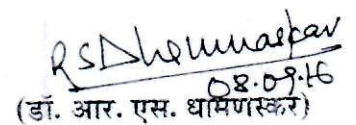 RSDhamnaskar
08.09.16
(डॉ. आर. एस. धामणस्कर)